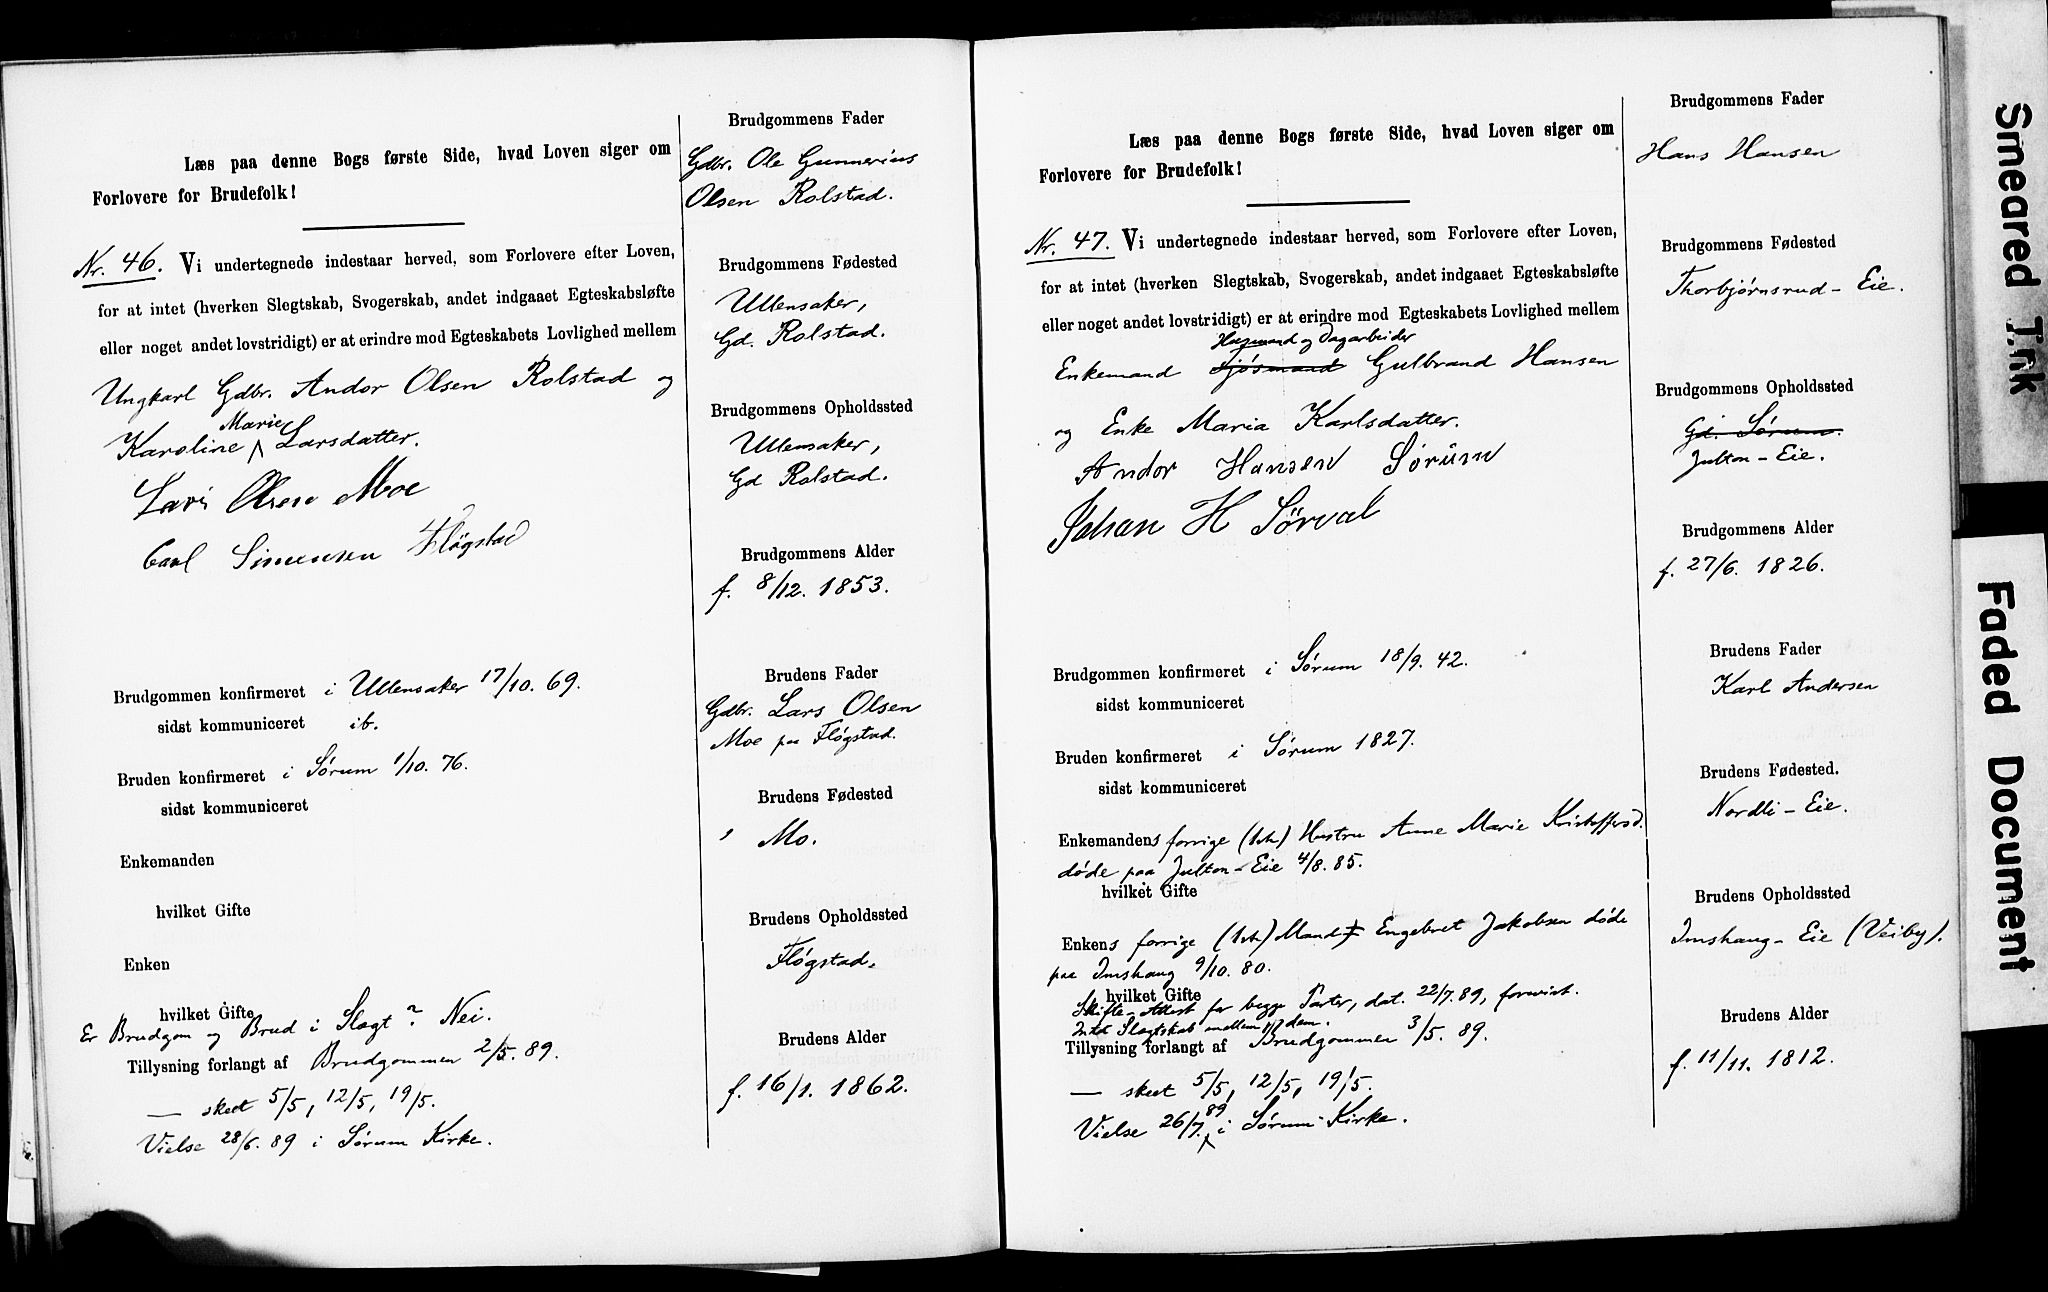 Læs paa denne Bogs første Side, hvad Loven siger om
Forlovere for Brudefolk!
Nr. 46. Vi undertegnede indestaar herved, som Forlovere efter Loven,
for at intet (hverken Slegtskab, Svogerskab, andet indgaaet Egteskabsløfte
eller noget andet lovstridigt) er at erindre mod Egteskabets Lovlighed mellem
Ungkarl Gdbr. Andor Olsen Rolstad og
Marie
Karoline Larsdatter.
Lars Olsen Moe
Carl Simensen Fløgstad
Brudgommen konfirmeret i Ullensaker 17/10. 69.
sidst kommuniceret ib.
Bruden konfirmeret i Sørum 1/10. 76.
sidst kommuniceret
Enkemanden
hvilket Gifte
Enken
hvilket Gifte
Er Brudgom og Brud i Slægt? Nei.
Tillysning forlangt af Brudgommen 2/5. 89.
— skeet 5/5, 12/5, 19/5.
Vielse 28/6. 89 i Sørum Kirke.
Brudgommens Fader
Gdbr. Ole Gunnerius
Olsen Rolstad.
Brudgommens Fødested
Ullensaker,
Gd. Rolstad.
Brudgommens Opholdssted
Ullensaker,
Gd Rolstad.
Brudgommens Alder
f. 8/12. 1853.
Brudens Fader
Gdbr. Lars Olsen
Moe paa Fløgstad.
Brudens Fødested
Mo.
Brudens Opholdssted
Fløgstad.
Brudens Alder
f. 16/1. 1862.
Læs paa denne Bogs første Side, hvad Loven siger om
Forlovere for Brudefolk!
Nr. 47. Vi undertegnede indestaar herved, som Forlovere efter Loven,
for at intet (hverken Slegtskab, Svogerskab, andet indgaaet Egteskabsløfte
eller noget andet lovstridigt) er at erindre mod Egteskabets Lovlighed mellem
Husmand og Dagarbeider
Enkemand Fjøsmand Gulbrand Hansen
og Enke Maria Karlsdatter.
Andor Hansen Sørum
Johan H Sørval
Brudgommen konfirmeret i Sørum 18/9. 42.
sidst kommuniceret
Bruden konfirmeret i Sørum 1827.
sidst kommuniceret
Enkemandens forrige (1ste) Hustru Anne Marie Kristoffersd.
døde paa Julton-Eie 4/8. 85.
hvilket Gifte
Enkens forrige (1ste) Mand Engebret Jakobsen døde
paa Imshaug 9/10. 80.
hvilket Gifte
Skifte-Attest for begge Parter, dat. 22/7. 89, forevist.
Intet Slægtskab mellem dem.
Tillysning forlangt af Brudgommen 3/5. 89.
— skeet 5/5, 12/5, 19/5.
89
Vielse 26/7. i Sørum Kirke.
Brudgommens Fader
Hans Hansen
Brudgommens Fødested
Thorbjørnsrud-Eie.
Brudgommens Opholdssted
Gd. Sørum.
Julton-Eie.
Brudgommens Alder
f. 27/6. 1826.
Brudens Fader
Karl Andersen
Brudens Fødested.
Nordli-Eie.
Brudens Opholdssted
Imshaug-Eie (Veiby).
Brudens Alder
f. 11/11. 1812.
Smeared Ink
Faded Document